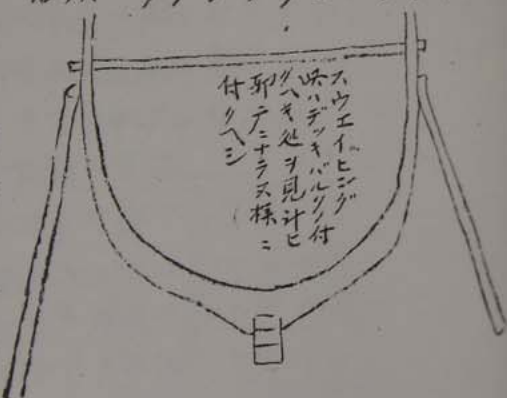 スウエイヒング
呉ハデッキバルリノ付
クヘキ処ヲ見計ヒ
邪テニナラヌ様ニ
付クヘシ